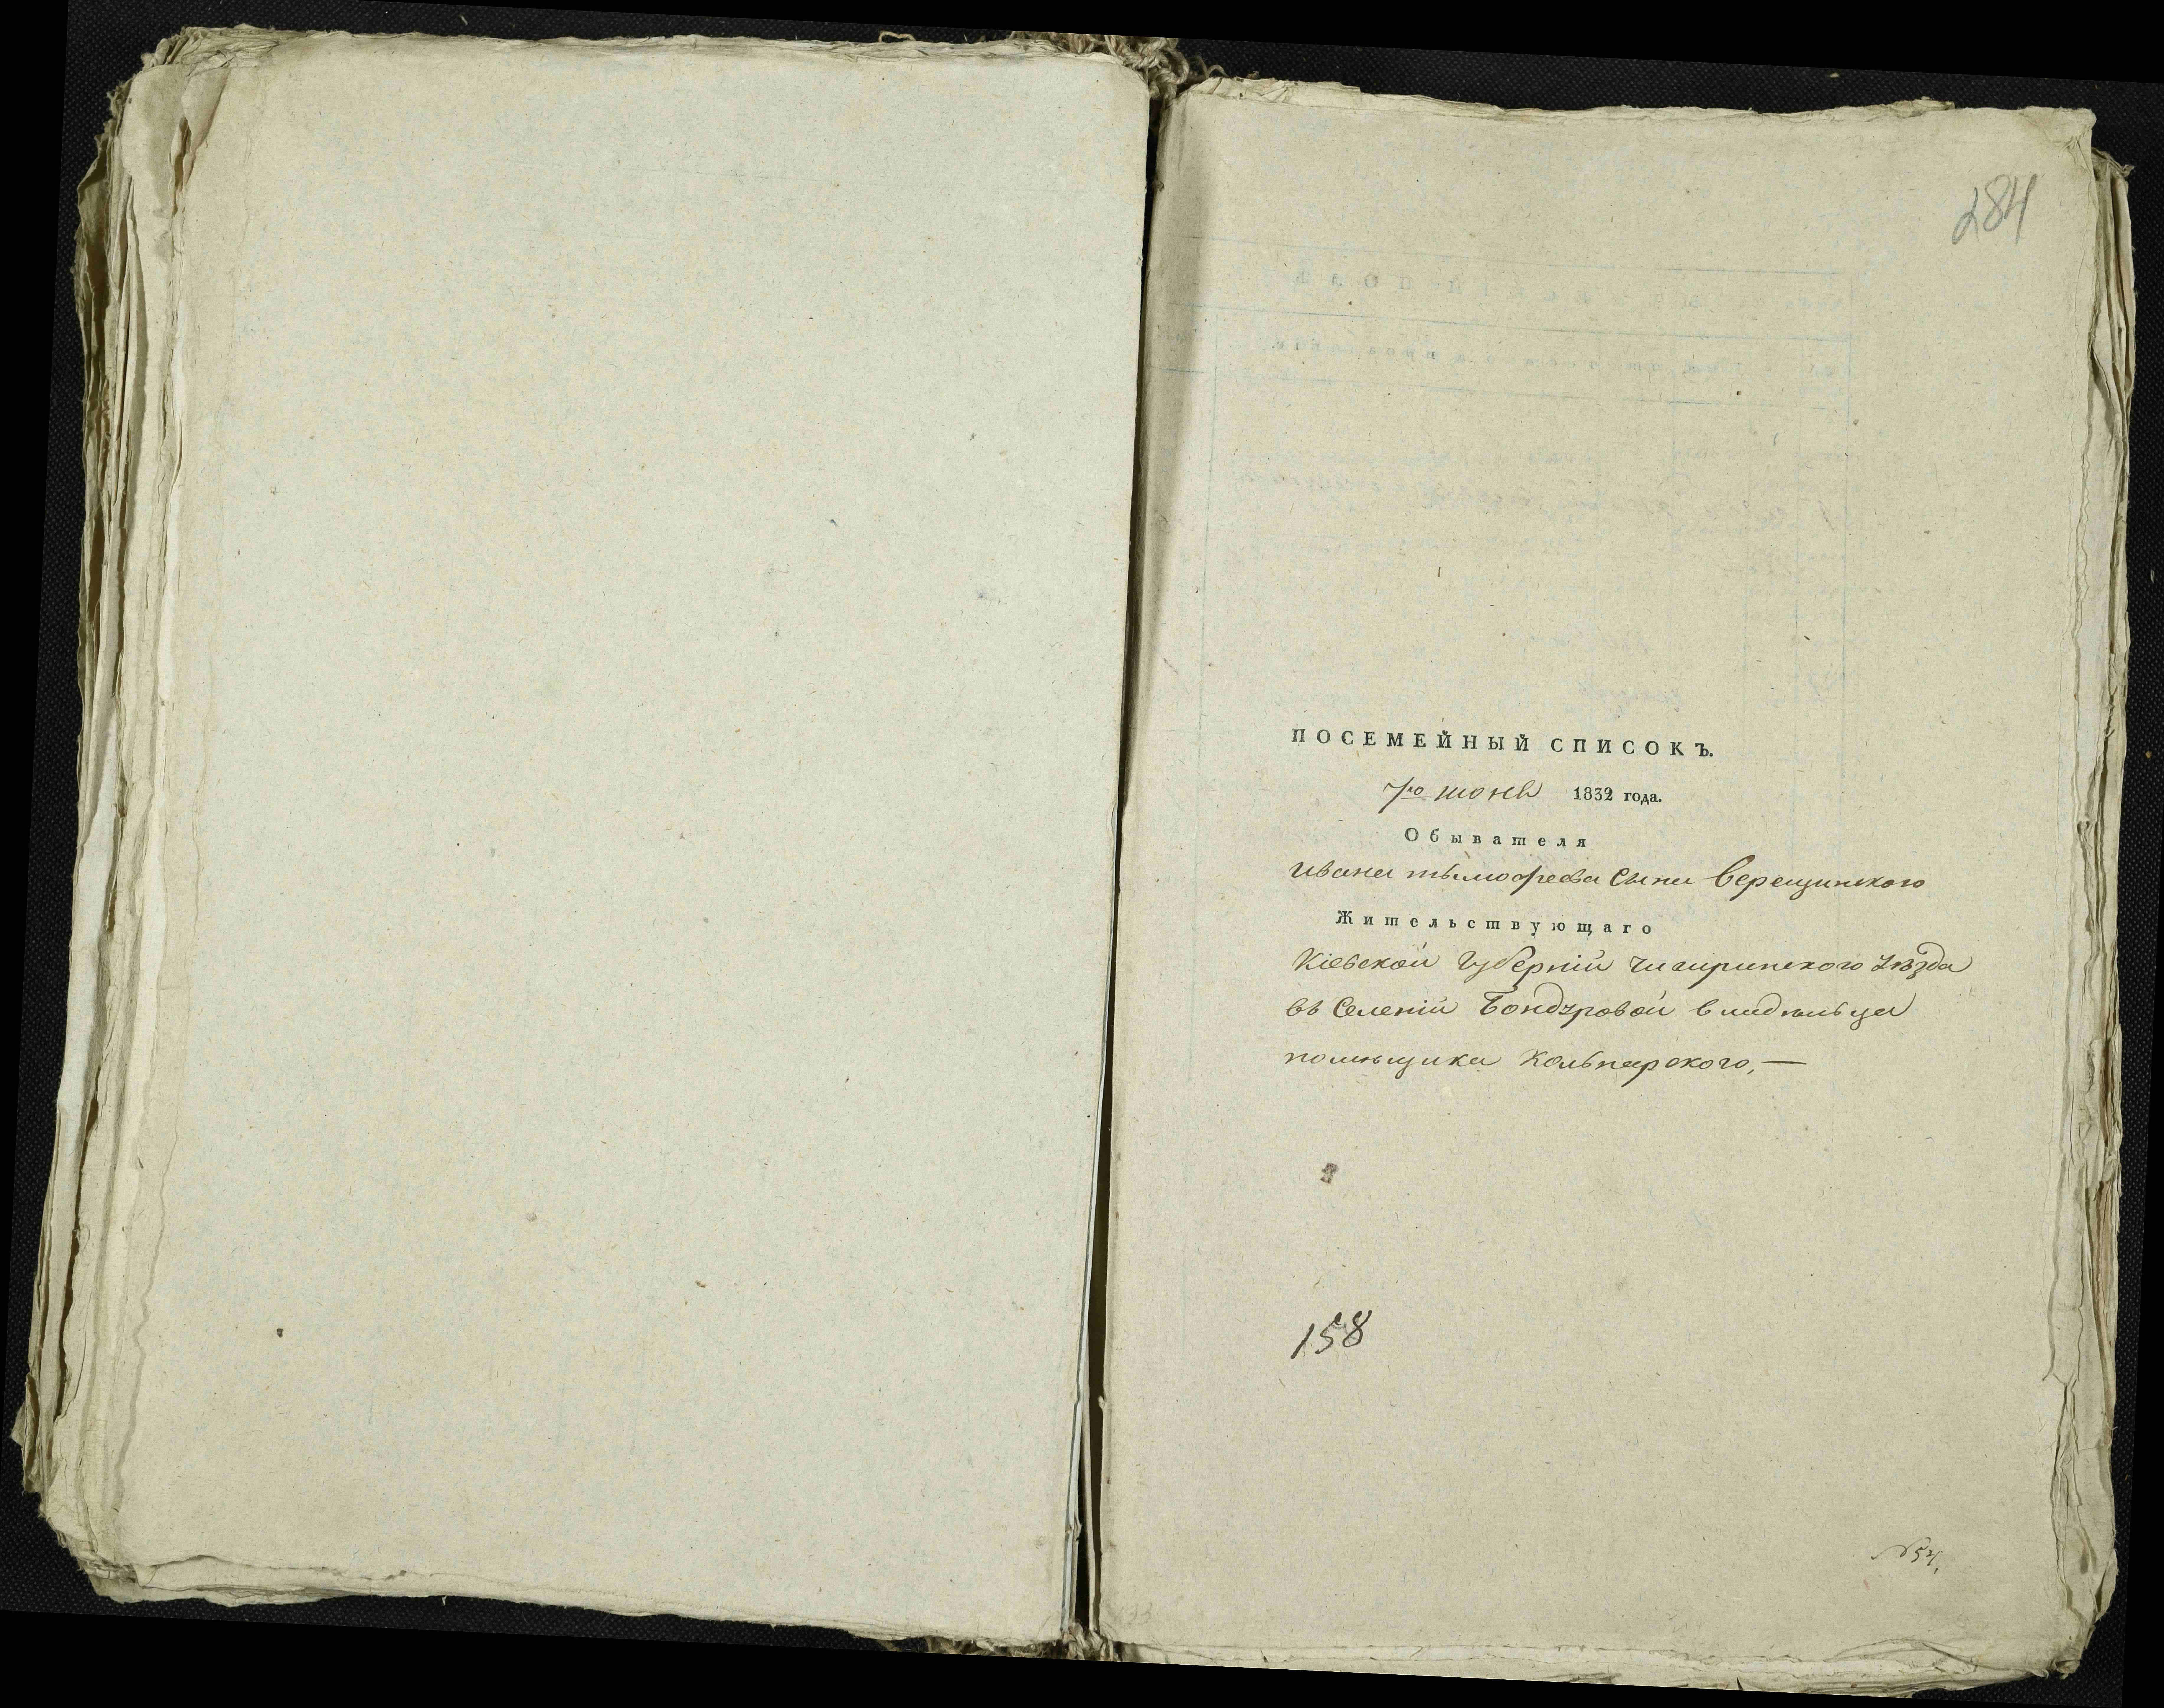 284
ПОСЕМЕЙНЫЙ СПИСОКЪ.
7го июня 1832 года.
Обывателя
Ивана тымофеева Сына Верещинского
Жительствующаго
Кіевской Губерніи Чигиринского Уѣзда
въ Селеніи Бондуровой владѣльца
помѣщика
158
№ 54,